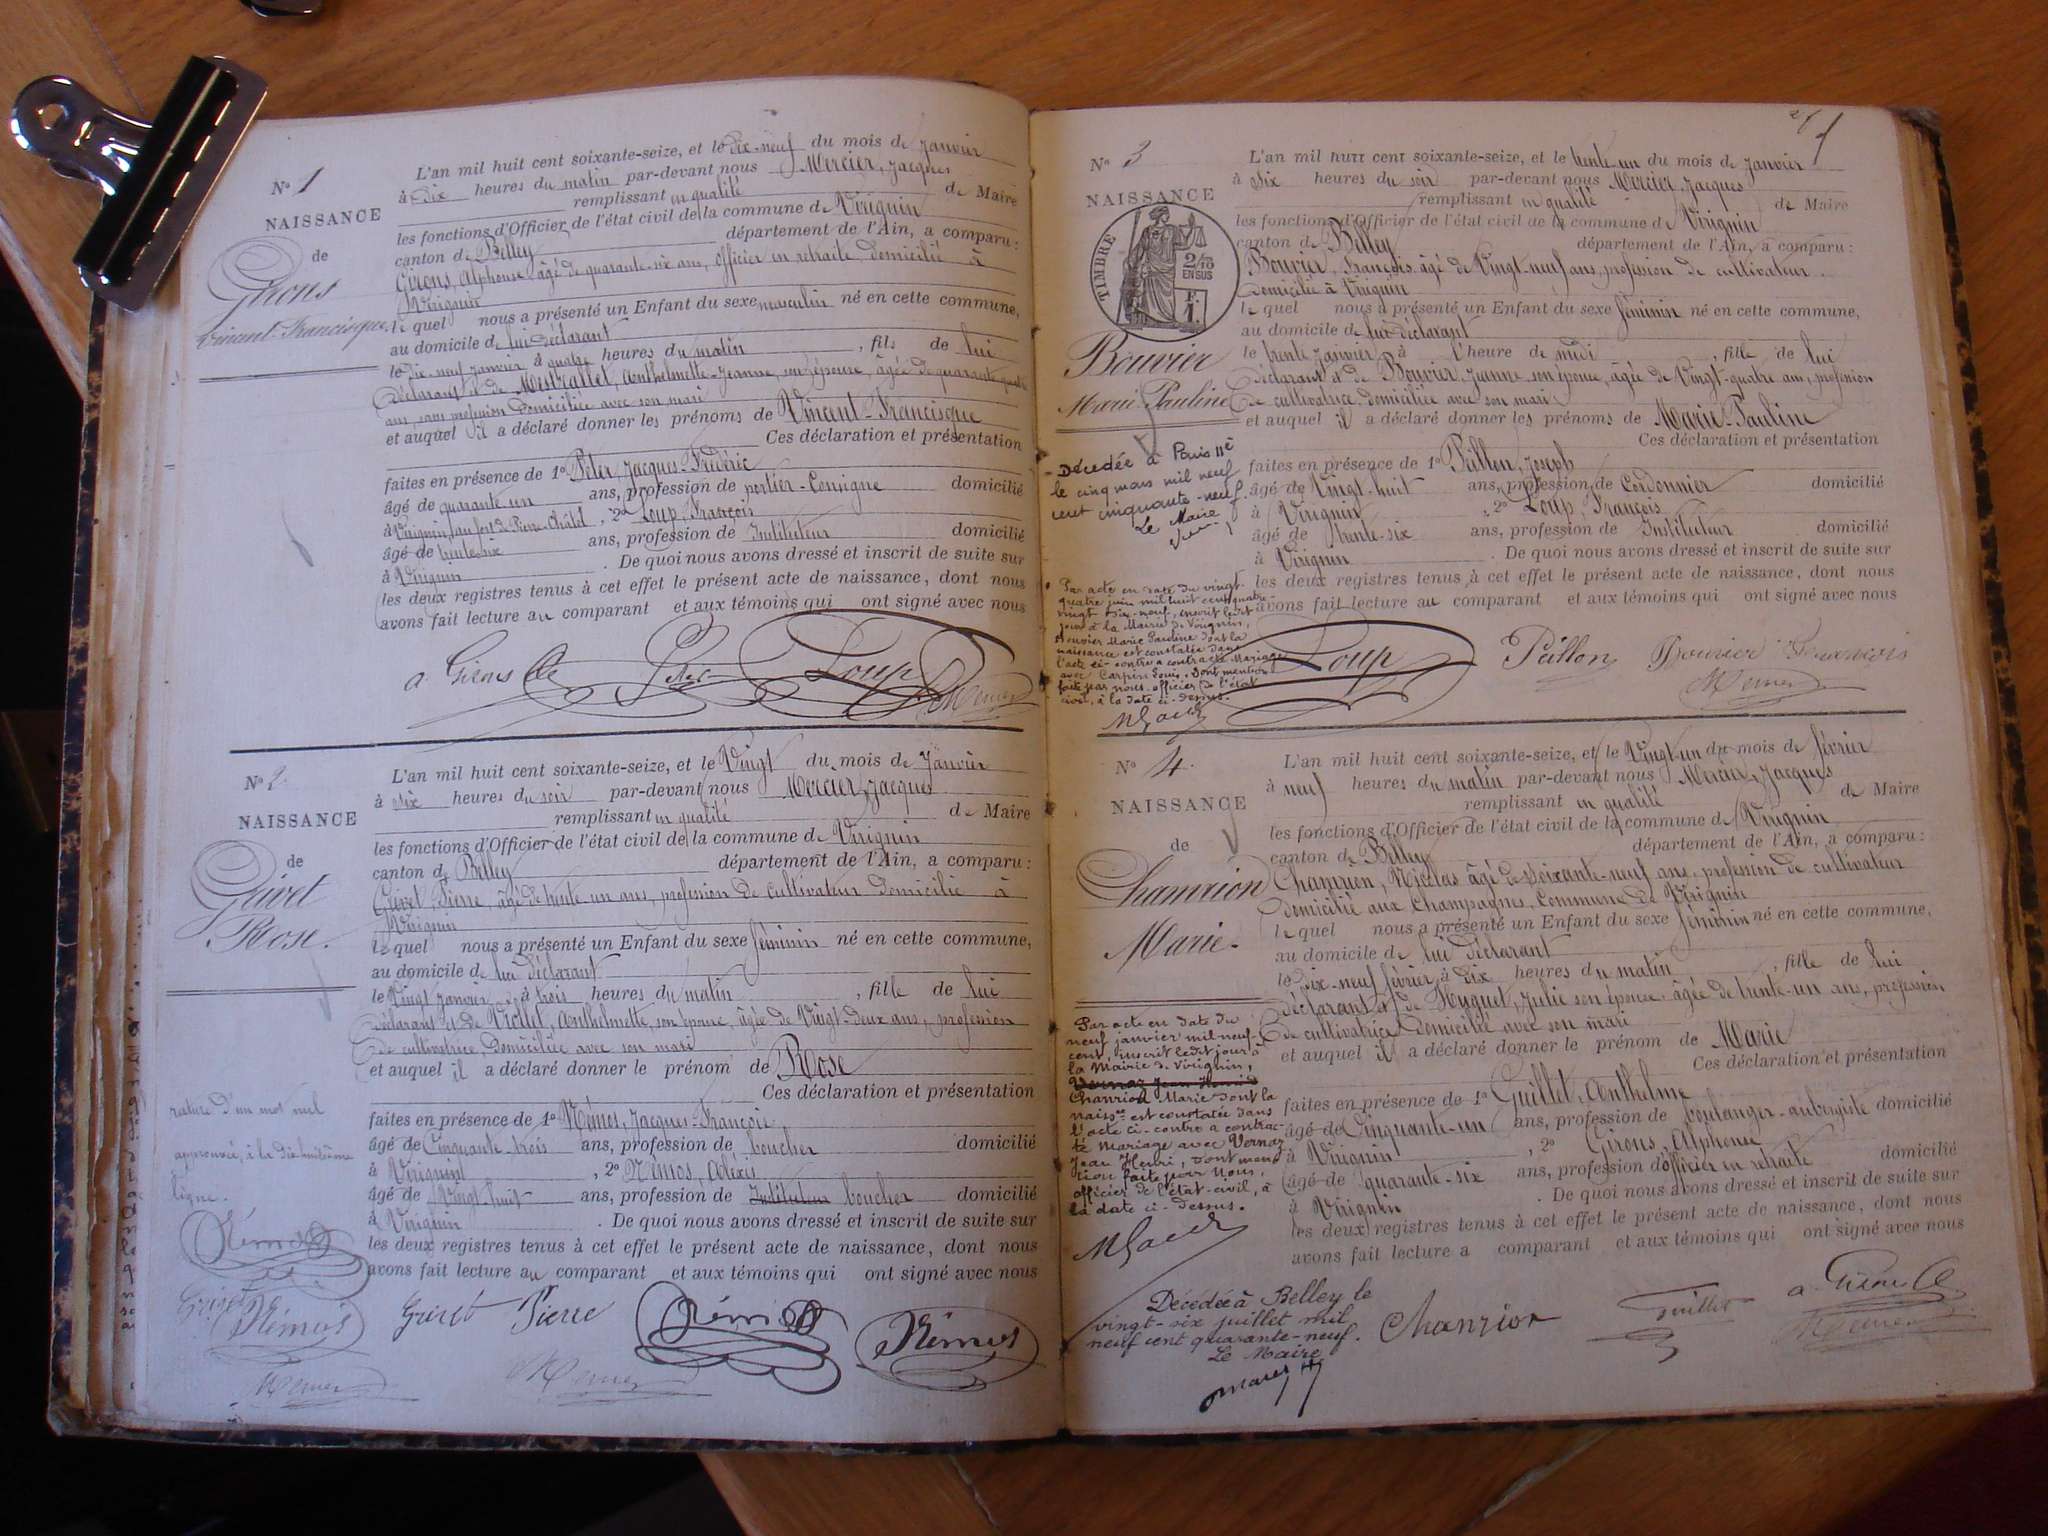 N° 1
NAISSANCE
de
Girons
Vincent-Francisque.
L'an mil huit cent soixante-seize, et le dix-neuf du mois de Janvier
à dix heures du matin par-devant nous Mercier, Jacques
remplissant en qualité de Maire
les fonctions d'Officier de l'état civil de la commune de Virignin
canton de Belley département de l'Ain, a comparu :
Girons, Alphonse âgé de quarante-six ans, officier en retraite, domicilié à
Virignin
lequel nous a présenté un Enfant du sexe masculin né en cette commune,
au domicile de lui déclarant
le dix-neuf janvier à quatre heures du matin, fils de lui
déclarant et de Mestrallet, Anthelmette-Jeanne, son épouse, âgée de quarante-quatre
ans, sans profession domiciliée avec son mari
et auquel il a déclaré donner les prénoms de Vincent-Francisque
Ces déclaration et présentation
faites en présence de 1° Péter, Jacques-Frédéric
âgé de quarante un ans, profession de portier-Consigne domicilié
à Virignin, au fort de Pierre-Châtel, 2° Loup, François
âgé de trente-six ans, profession de Instituteur domicilié
à Virignin. De quoi nous avons dressé et inscrit de suite sur
les deux registres tenus à cet effet le présent acte de naissance, dont nous
avons fait lecture au comparant et aux témoins qui ont signé avec nous
a Girons Péter Loup
Mercier
N° 2
NAISSANCE
de
Grivet
Rose.
L'an mil huit cent soixante-seize, et le Vingt du mois de Janvier
à six heures du soir par-devant nous Mercier, Jacques
remplissant en qualité de Maire
les fonctions d'Officier de l'état civil de la commune de Virignin
canton de Belley département de l'Ain, a comparu :
Grivet, Pierre, âgé de trente un ans, profession de cultivateur domicilié à
Virignin
lequel nous a présenté un Enfant du sexe féminin né en cette commune,
au domicile de lui déclarant
le Vingt janvier à trois heures du matin, fille de lui
déclarant et de Viollet, Anthelmette, son épouse, âgée de Vingt-deux ans, profession
de cultivatrice, domiciliée avec son mari
et auquel il a déclaré donner le prénom de Rose
Ces déclaration et présentation
faites en présence de 1° Némos, Jacques-François
âgé de Cinquante-trois ans, profession de boucher domicilié
à Virignin, 2° Némos, Alexis
âgé de Vingt-huit ans, profession de Instituteur boucher domicilié
à Virignin. De quoi nous avons dressé et inscrit de suite sur
les deux registres tenus à cet effet le présent acte de naissance, dont nous
avons fait lecture au comparant et aux témoins qui ont signé avec nous
rature d'un mot nul
approuvée, à la dix-huitième
ligne.
Némos
Grivet Némos
Mercier
Grivet Pierre Némos Némos
Mercier
N° 3
NAISSANCE
TIMBRE
2/10
EN SUS
F.
1.
Bouvier
Marie-Pauline
L'an mil huit cent soixante-seize, et le trente-un du mois de Janvier
à Six heures du soir par-devant nous Mercier, Jacques
remplissant en qualité de Maire
les fonctions d'Officier de l'état civil de la commune de Virignin
canton de Belley département de l'Ain, a comparu :
Bouvier, François, âgé de Vingt-neuf ans, profession de cultivateur
domicilié à Virignin
lequel nous a présenté un Enfant du sexe féminin né en cette commune,
au domicile de lui déclarant
le trente janvier à l'heure de midi, fille de lui
déclarant et de Bouvier, Jeanne son épouse, âgée de Vingt-quatre ans, profession
de cultivatrice, domiciliée avec son mari
et auquel il a déclaré donner les prénoms de Marie-Pauline
Ces déclaration et présentation
faites en présence de 1° Peillon, Joseph
âgé de Vingt-huit ans, profession de Cordonnier domicilié
à Virignin, 2° Loup, François
âgé de trente-six ans, profession de Instituteur domicilié
à Virignin. De quoi nous avons dressé et inscrit de suite sur
les deux registres tenus à cet effet le présent acte de naissance, dont nous
avons fait lecture au comparant et aux témoins qui ont signé avec nous
Décédée à Paris 11e
le cinq mars mil neuf
cent cinquante-neuf.
Le Maire
Par acte en date du vingt-
quatre juin mil huit cent quatre-
vingt-dix-neuf, inscrit ledit
jour à la Mairie de Virignin,
Bouvier Marie Pauline dont la
naissance est constatée dans
l'acte ci-contre a contracté Mariage
avec Carpin Louis. Dont mention
faite par nous officier de l'état
civil, à la date ci-dessus.
Loup Peillon Bouvier François
Mercier
N° 4.
NAISSANCE
de
Chamrion
Marie.
L'an mil huit cent soixante-seize, et le Vingt-un du mois de février
à neuf heures du matin par-devant nous Mercier, Jacques
remplissant en qualité de Maire
les fonctions d'Officier de l'état civil de la commune de Virignin
canton de Belley département de l'Ain, a comparu :
Chamrion, Nicolas âgé de soixante-neuf ans, profession de cultivateur
domicilié aux Champagnes, Commune de Virignin
lequel nous a présenté un Enfant du sexe féminin né en cette commune,
au domicile de lui déclarant
le dix-neuf février à dix heures du matin, fille de lui
déclarant et de Huguet, Julie son épouse, âgée de trente-un ans, profession
de cultivatrice domiciliée avec son mari
et auquel il a déclaré donner le prénom de Marie
Ces déclaration et présentation
faites en présence de 1° Guillet, Anthelme
âgé de Cinquante-un ans, profession de boulanger-aubergiste domicilié
à Virignin, 2° Girons, Alphonse
âgé de quarante-six ans, profession d'officier en retraite domicilié
à Virignin. De quoi nous avons dressé et inscrit de suite sur
les deux registres tenus à cet effet le présent acte de naissance, dont nous
avons fait lecture a comparant et aux témoins qui ont signé avec nous
Par acte en date du
neuf janvier mil neuf-
cent, inscrit ledit jour à
la Mairie de Virignin,
Vernaz Jean Henri
Chamrion Marie dont la
naissce est constatée dans
l'acte ci-contre a contrac-
té Mariage avec Vernaz
Jean Henri, dont men-
tion faite par Nous,
officier de l'état-civil, à
la date ci-dessus.
Décédée à Belley le
vingt-six juillet mil
neuf cent quarante-neuf.
Le Maire
Chanrion Guillet a Girons
Mercier